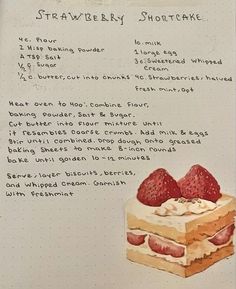 Strawberry Shortcake
4c. Flour
2 tbsp baking powder
4 tsp Salt
1/3 c. Sugar
1/2 c. butter, cut into chunks
1c. milk
1 large egg
3c. Sweetened Whipped Cream
4c. Strawberries, halved
Fresh mint, opt
Heat oven to 400°. Combine Flour,
baking Powder, Salt & Sugar.
Cut butter into Flour mixture until
it resembles Coarse crumbs. Add milk & eggs
Stir until combined. Drop dough onto greased
baking Sheets to make 8-inch rounds
bake until golden 10-12 minutes
Serve, layer biscuits, berries,
and whipped Cream. Garnish
with Freshmint